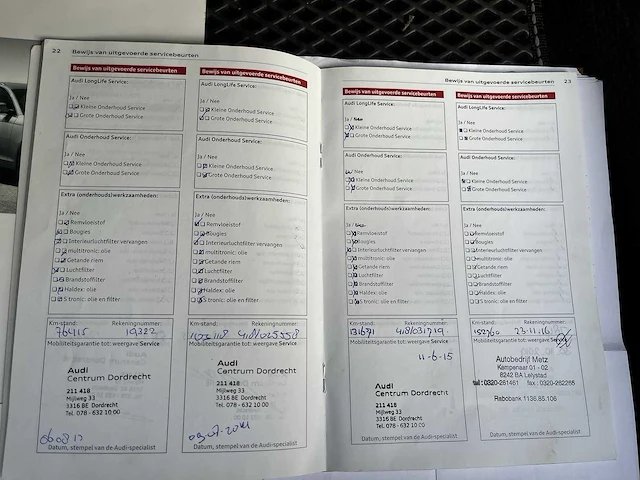 22 Bewijs van uitgevoerde servicebeurten
Bewijs van uitgevoerde servicebeurten
Audi LongLife Service:
Ja / Nee
Kleine Onderhoud Service
Grote Onderhoud Service
Audi Onderhoud Service:
Ja / Nee
Kleine Onderhoud Service
Grote Onderhoud Service
Extra (onderhouds)werkzaamheden:
Ja / Nee
Remvloeistof
Bougies
Interieurluchtfilter vervangen
multitronic: olie
Getande riem
Luchtfilter
Brandstoffilter
Haldex: olie
S tronic: olie en filter
Km-stand: Rekeningnummer:
76415 19322
Mobiliteitsgarantie tot: weergave Service
Audi
Centrum Dordrecht
211 418
Mijlweg 33
3316 BE Dordrecht
Tel. 078 - 632 10 00
Datum, stempel van de Audi-specialist
Bewijs van uitgevoerde servicebeurten
Audi LongLife Service:
Ja / Nee
Kleine Onderhoud Service
Grote Onderhoud Service
Audi Onderhoud Service:
Ja / Nee
Kleine Onderhoud Service
Grote Onderhoud Service
Extra (onderhouds)werkzaamheden:
Ja / Nee
Remvloeistof
Bougies
Interieurluchtfilter vervangen
multitronic: olie
Getande riem
Luchtfilter
Brandstoffilter
Haldex: olie
S tronic: olie en filter
Km-stand: Rekeningnummer:
Mobiliteitsgarantie tot: weergave Service
Audi
Centrum Dordrecht
211 418
Mijlweg 33
3316 BE Dordrecht
Tel. 078 - 632 10 00
Datum, stempel van de Audi-specialist
Bewijs van uitgevoerde servicebeurten 23
Bewijs van uitgevoerde servicebeurten
Audi LongLife Service:
Ja / Nee
Kleine Onderhoud Service
Grote Onderhoud Service
Audi Onderhoud Service:
Ja / Nee
Kleine Onderhoud Service
Grote Onderhoud Service
Extra (onderhouds)werkzaamheden:
Ja / Nee
Remvloeistof
Bougies
Interieurluchtfilter vervangen
multitronic: olie
Getande riem
Luchtfilter
Brandstoffilter
Haldex: olie
S tronic: olie en filter
Km-stand: Rekeningnummer:
131671 418/031719
Mobiliteitsgarantie tot: weergave Service
11-6-15
Audi
Centrum Dordrecht
211 418
Mijlweg 33
3316 BE Dordrecht
Tel. 078 - 632 10 00
Datum, stempel van de Audi-specialist
Bewijs van uitgevoerde servicebeurten
Audi LongLife Service:
Ja / Nee
Kleine Onderhoud Service
Grote Onderhoud Service
Audi Onderhoud Service:
Ja / Nee
Kleine Onderhoud Service
Grote Onderhoud Service
Extra (onderhouds)werkzaamheden:
Ja / Nee
Remvloeistof
Bougies
Interieurluchtfilter vervangen
multitronic: olie
Getande riem
Luchtfilter
Brandstoffilter
Haldex: olie
S tronic: olie en filter
Km-stand: Rekeningnummer:
152760 23-11-16
Mobiliteitsgarantie tot: weergave Service
Autobedrijf Metz
Kempenaar 01 - 02
8242 BA Lelystad
tel: 0320-261461 fax: 0320-262265
Rabobank 1136.85.106
Datum, stempel van de Audi-specialist